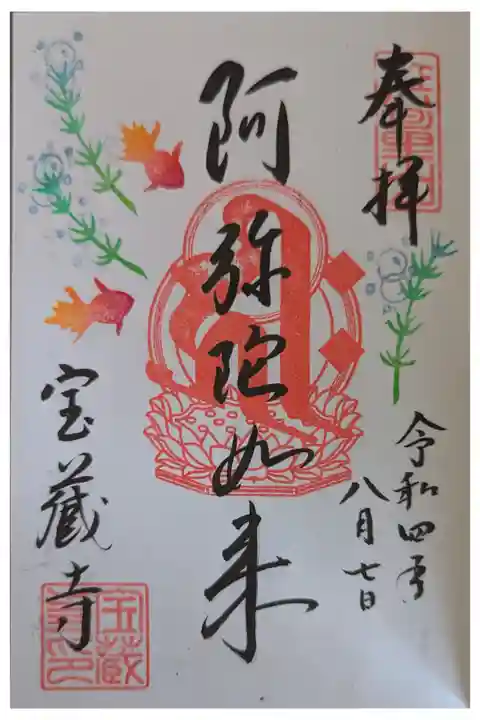 奉拝
令和四年
八月七日
阿弥陀如来
宝蔵寺